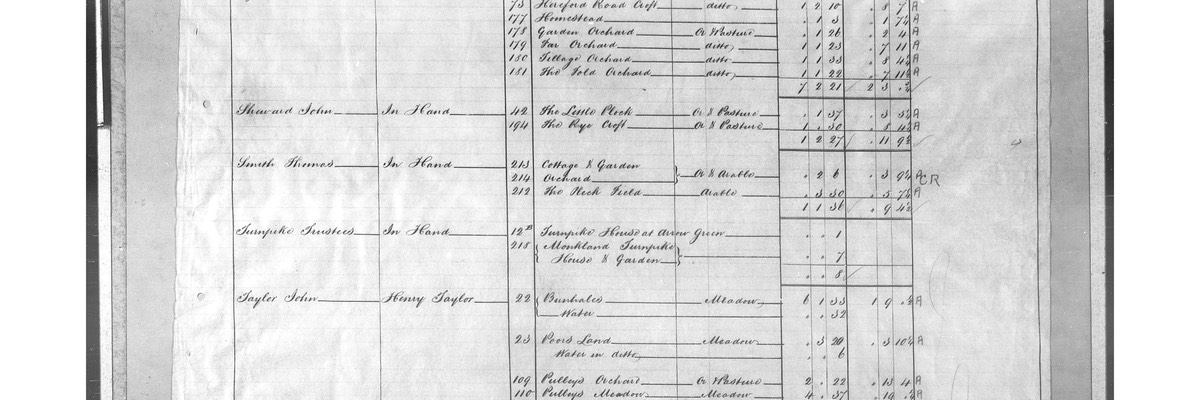 73 Hereford Road Croft ditto 1 2 10 . 8 7 A
177 Homestead . 1 3 1 7½ A
178 Garden Orchard Or Pasture . 1 26 . 2 4 A
179 Far Orchard ditto 1 1 23 . 7 11 A
180 Tillage Orchard ditto 1 1 33 . 8 4½ A
181 The Fold Orchard ditto 1 1 22 . 7 11½ A
7 2 21 2 3 .½
Sheward John In Hand 42 The Little Pleck Or & Pasture . 1 37 . 3 3½ A
194 The Rye Croft Or & Pasture 1 . 30 . 8 A
1 2 27 . 11 9½
Smith Thomas In Hand 213 Cottage & Garden
214 Orchard Or & Arable . 2 6 . 3 9½ A CR
212 The Pleck Field Arable . 3 30 . 5 7½ A
1 1 36 . 9 4½
Turnpike Trustees In Hand 12B Turnpike House at Arrow Green . . 1
218 Monkland Turnpike
House & Garden . . 7
. . 8
Taylor John Henry Taylor 22 Bunhales Meadow 6 1 33 1 9 .½ A
Water . . 32
23 Poors Land Meadow . 3 20 . 3 10½ A
Water in ditto . . 6
109 Pulleys Orchard Or Pasture 2 . 22 . 13 4 A
110 Pulleys Meadow Meadow 4 . 37 . 19 A